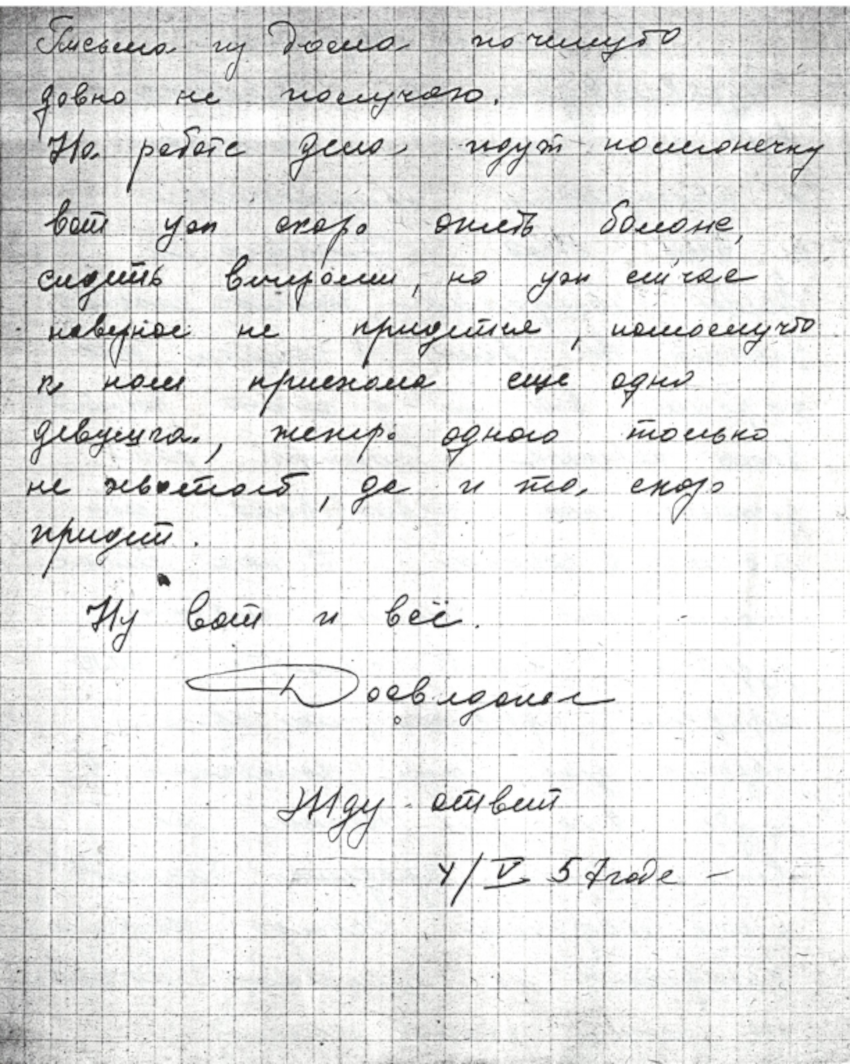 Письма из дома почемуто
давно не получаю.
На работе дела идут помаленечку
вот уж скоро опять
сидеть вечерами, но уж сейчас
наверное не придется, потомучто
к нам приехала еще одна
девушка, одного только
не хватает, да и та, скоро
придет.
Ну вот и всё.
Досвидания
Жду ответ
4/V 57 года -